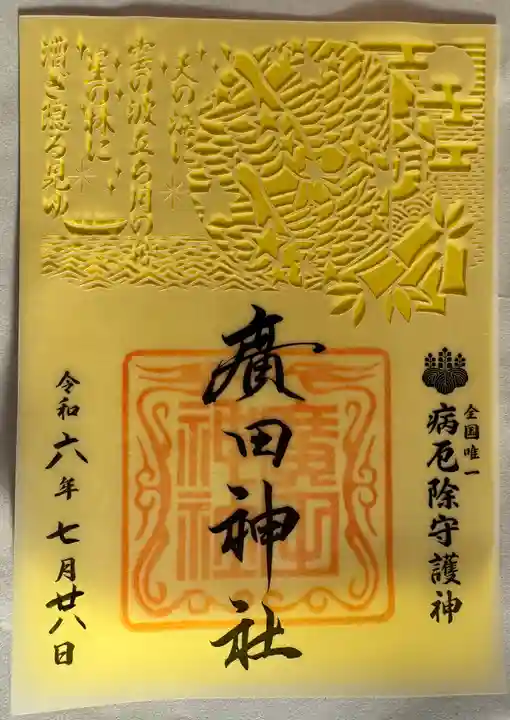 天の海に
雲の波立ち月の船
星の林に
漕ぎ隠る見ゆ
全国唯一
病厄除守護神
廣田神社
廣田
神社
令和六年七月廿八日